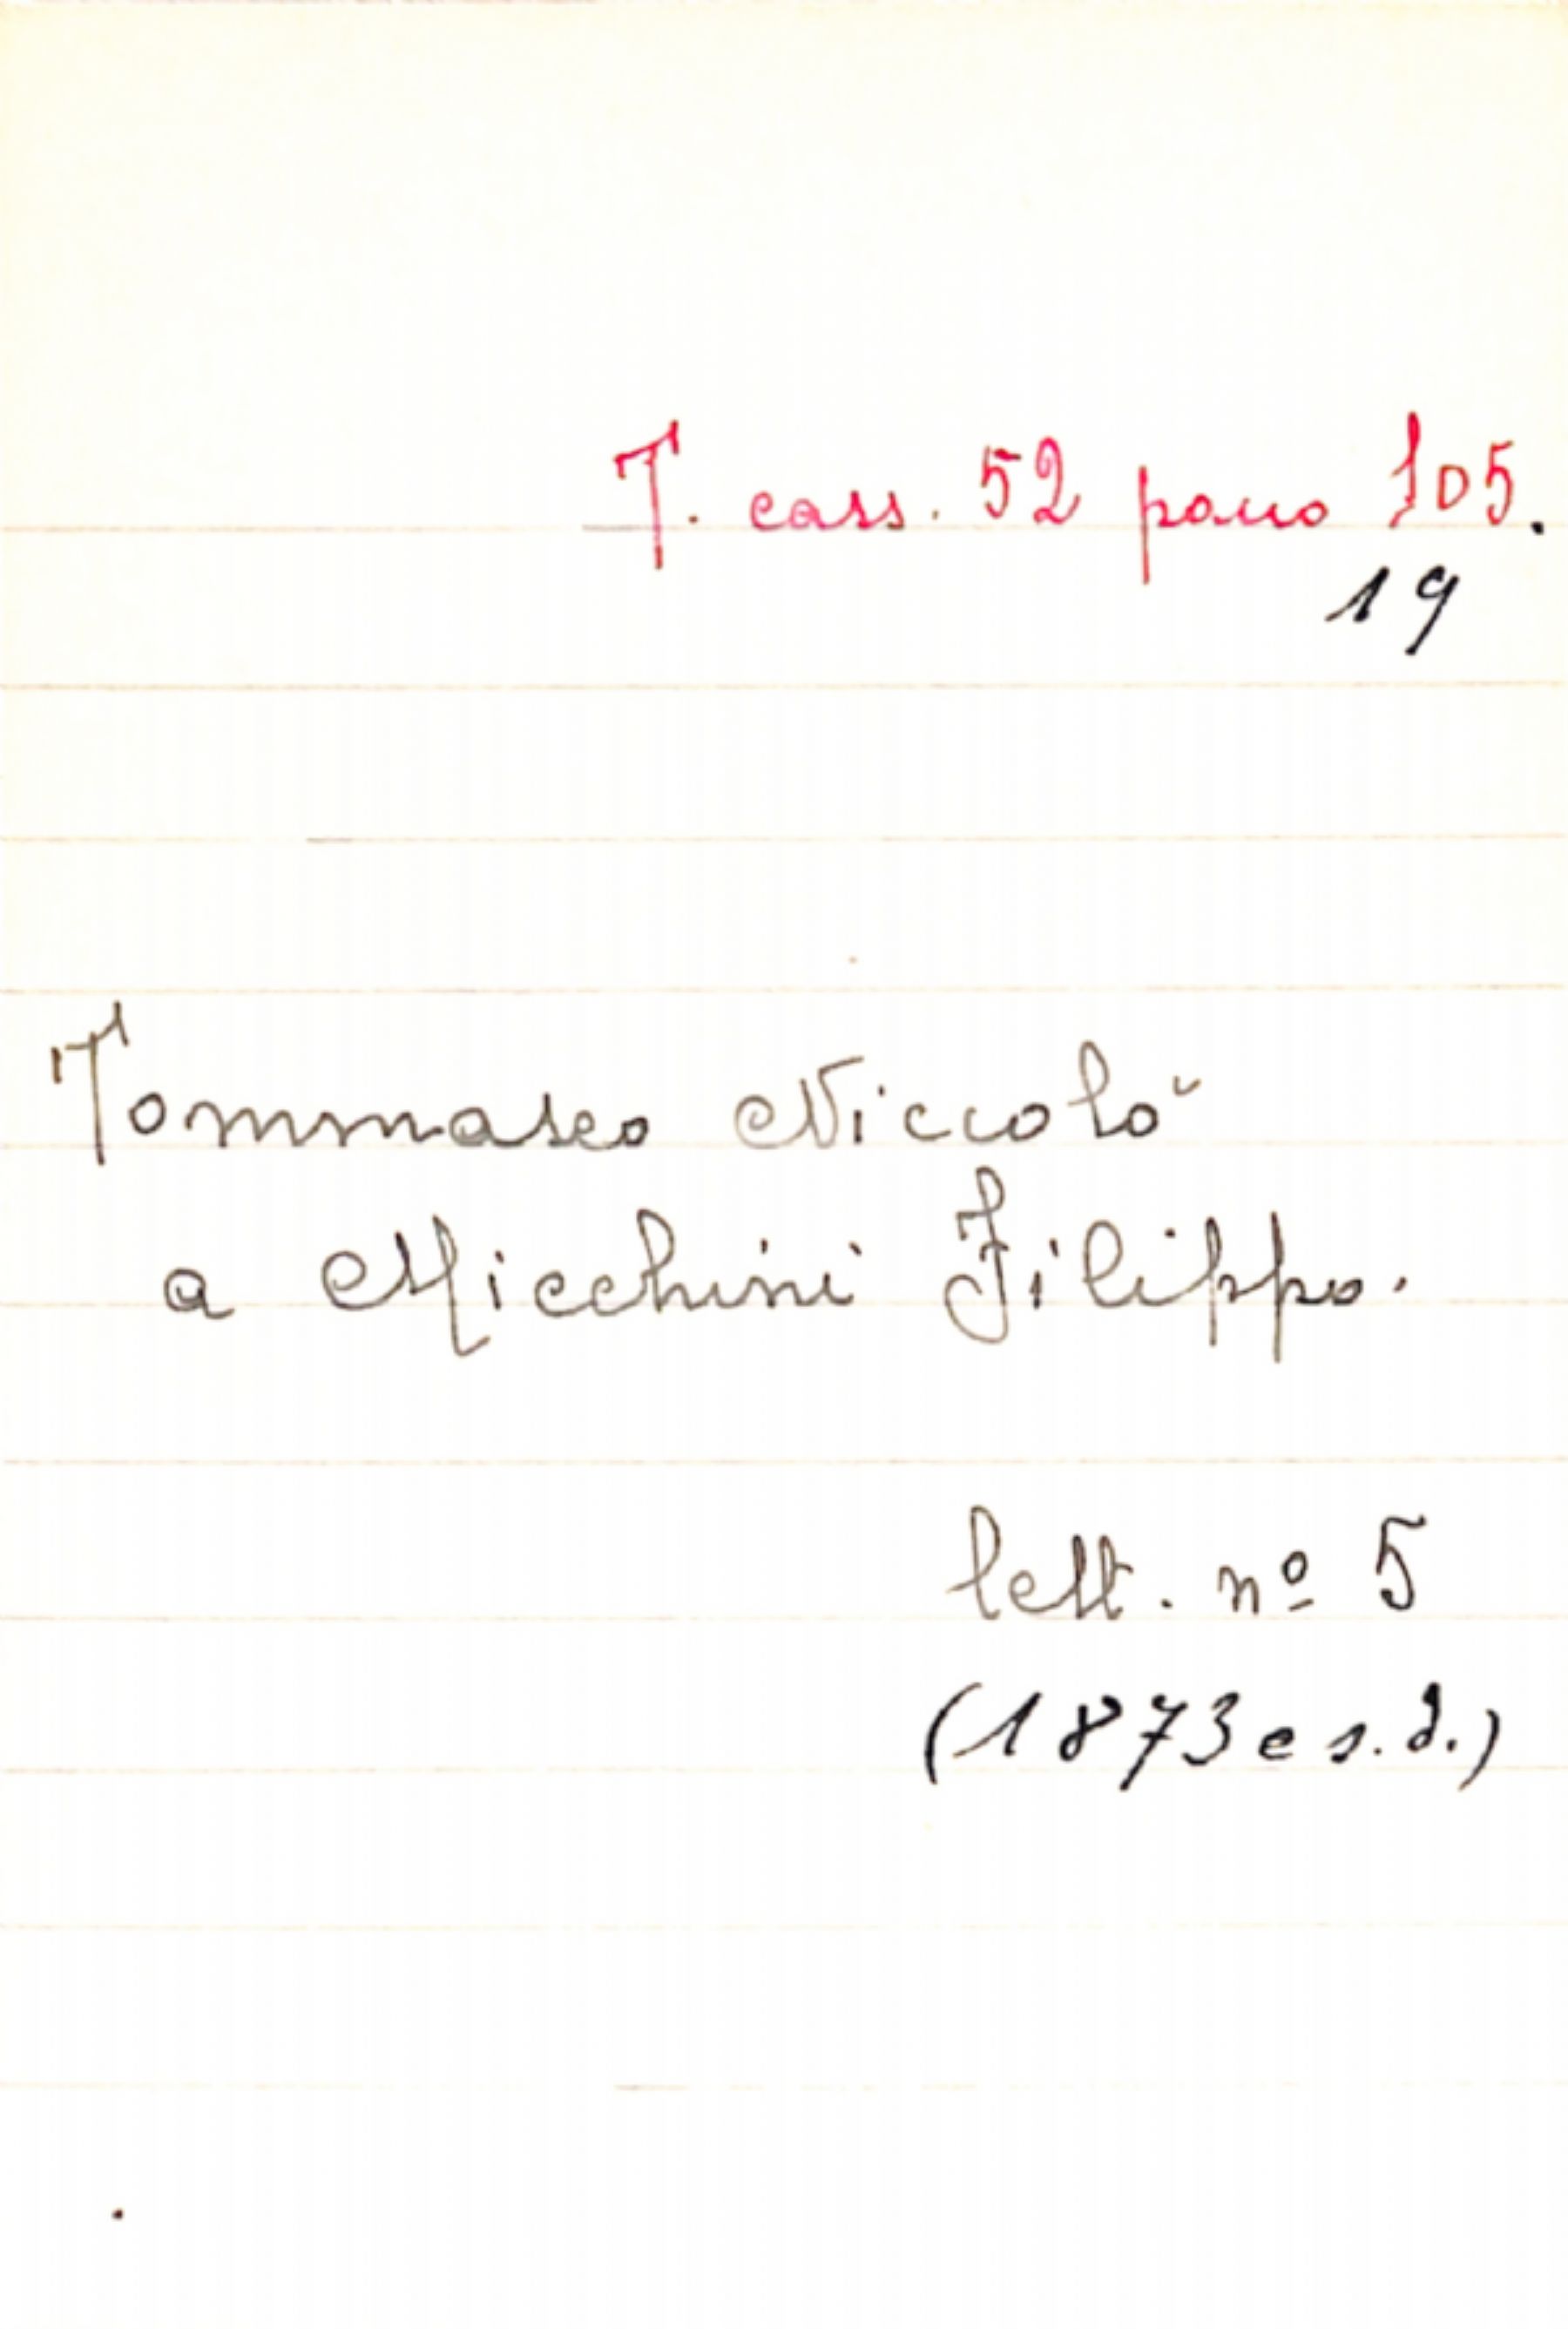 T. cass. 52 panno 105.
19
Tommaseo Niccolò
a Micchini Filippo.
lett. nº 5
(1873 e s.d.)